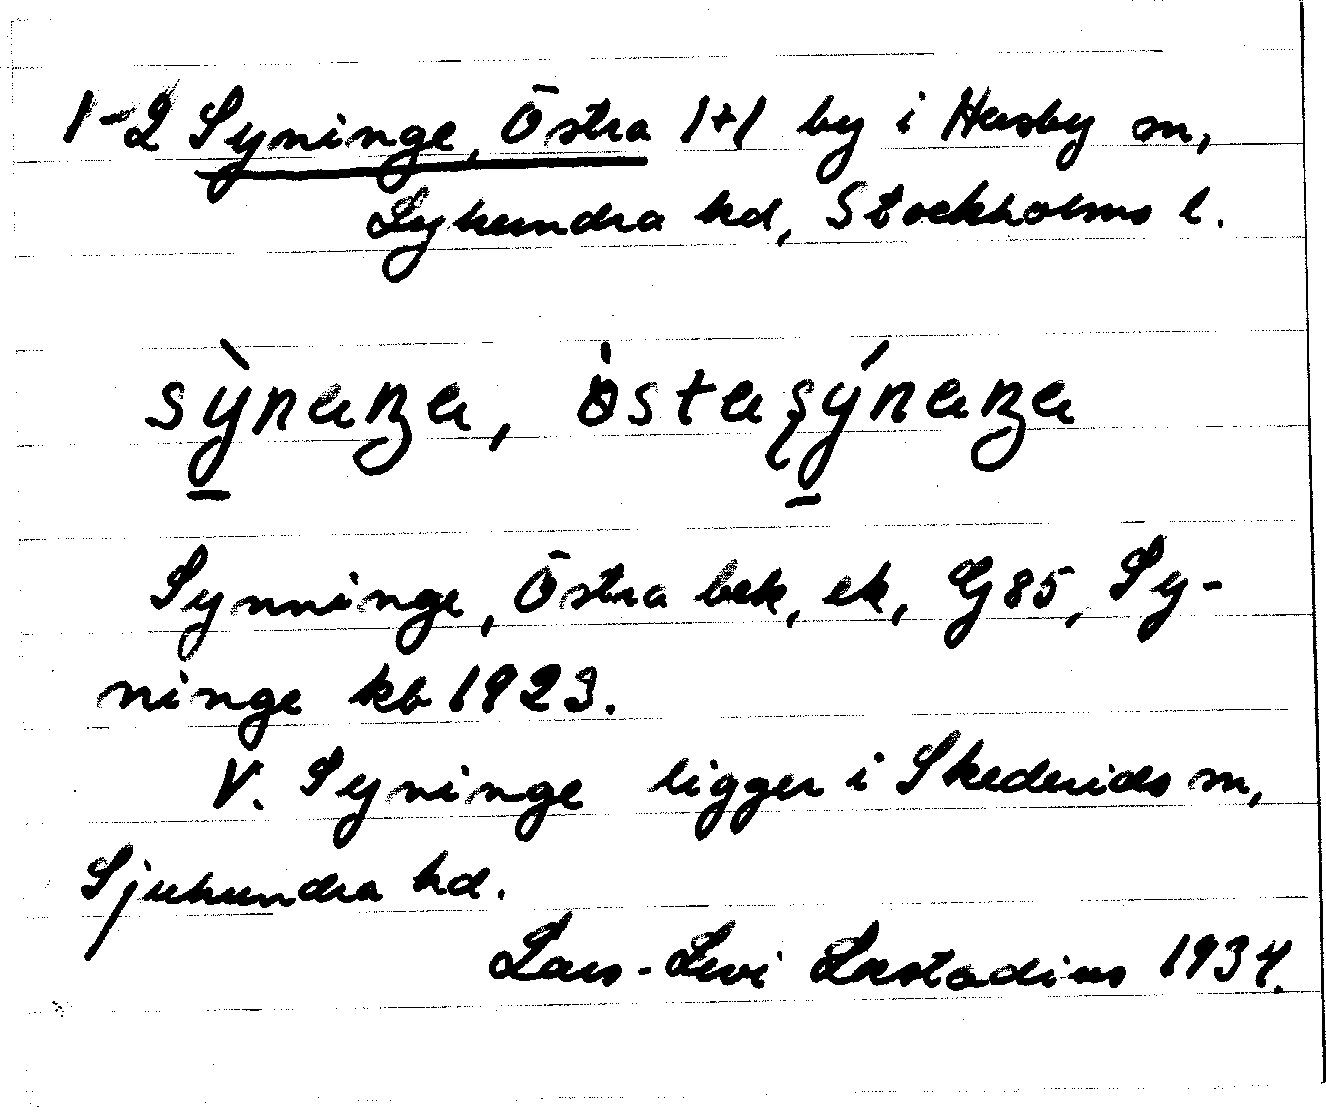 1-2 Syninge, Östra 1+1 by i Husby sn,
Lyhundra hd, Stockholms l.
sỳnaŋa, östaşýnaŋa
Synninge, Östra bek, ek, G85, Sy-
ninge kb 1923.
V. Syninge ligger i Skederids sn,
Sjuhundra hd.
Lars-Levi Læstadius 1934.